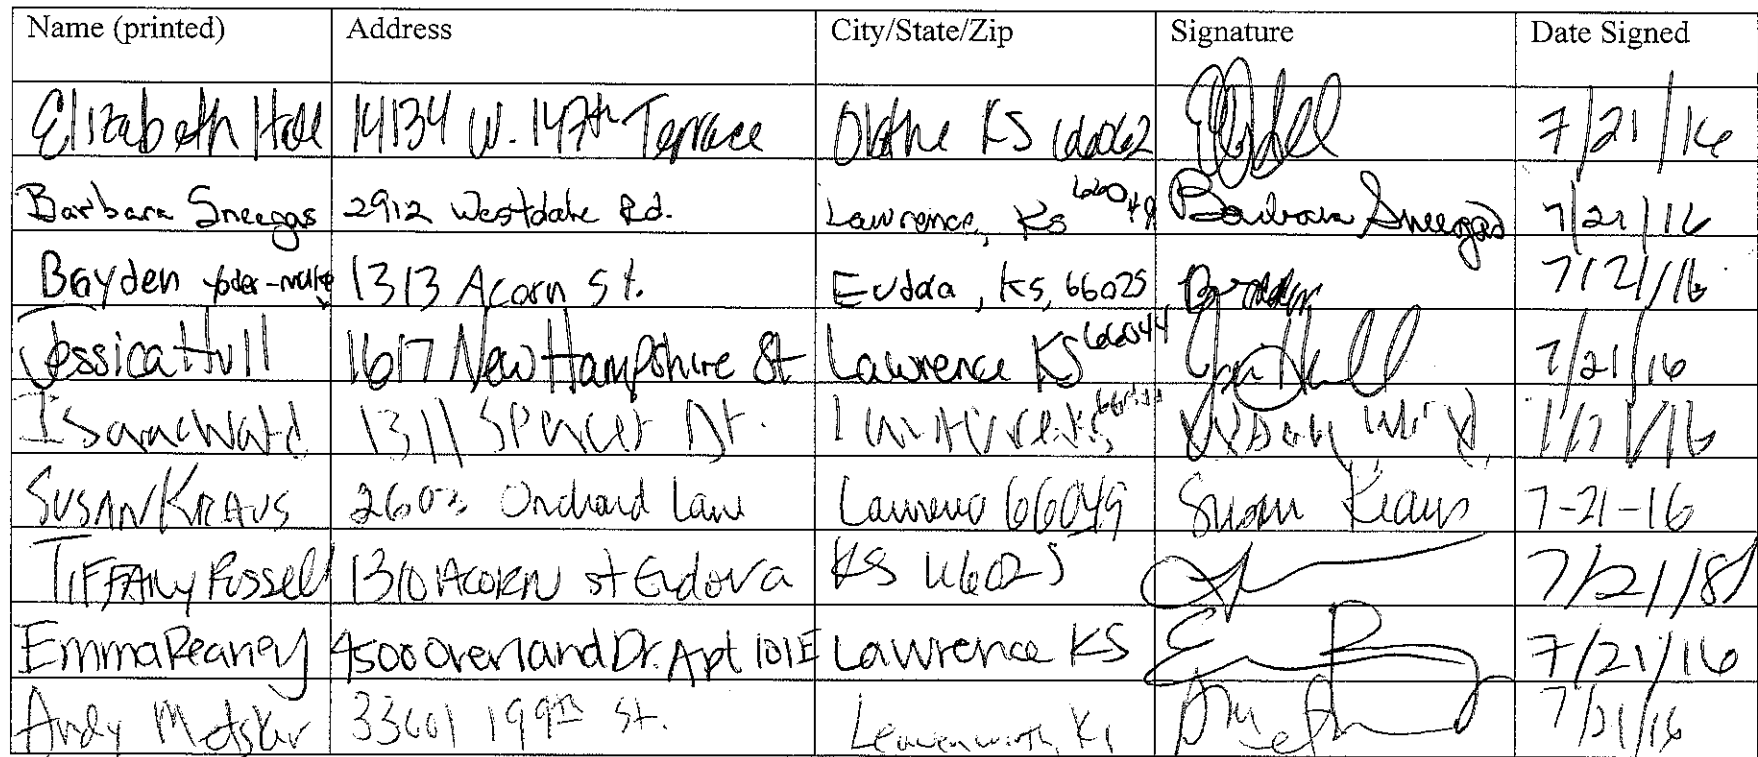 Name (printed) Address City/State/Zip Signature Date Signed
Elizabeth Hall 14134 W. 147th Terrace Olathe KS 66062 7/21/16
Barbara Sneegas 2912 Westdale Rd. Lawrence, Ks 66049 Barbara Sneegas 7/21/16
Bayden 1313 Acorn St. Eudora, KS, 66025 7/21/16
Jessica Hull 1617 New Hampshire St Lawrence KS 66044 7/21/16
Isaac 1311 Spencer
Susan Kraus 2603 Orchard Lane Lawrence 66049 Susan Kraus 7-21-16
Tiffany 1310 Acorn st Eudora KS 66025 7/21/
Emma Reaney 4500 Overland Dr. Apt 101E Lawrence KS 7/21/16
Andy Metsker 199th St. Leavenworth, Ks 7/21/16